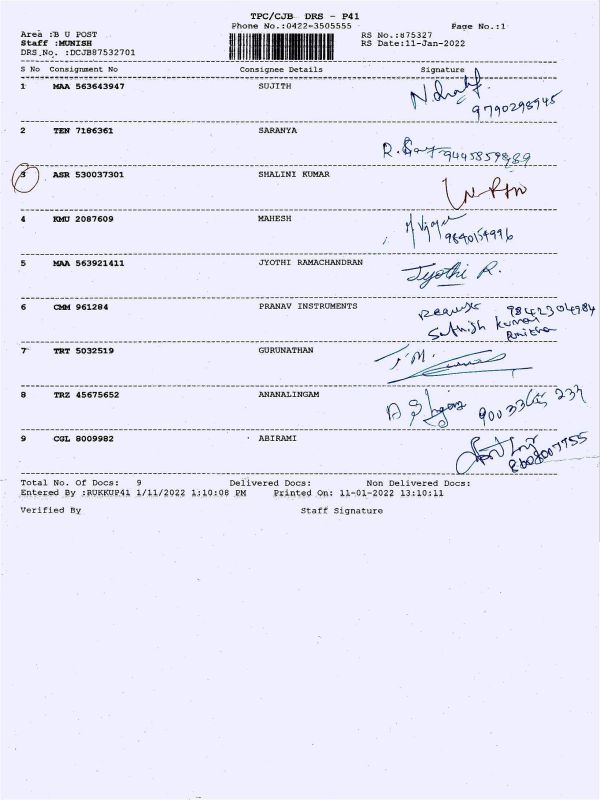 TPC/CJB DRS - P41
Phone No.:0422-3505555 Page No.:1
Area :B U POST RS No.:875327
Staff :MUNISH RS Date:11-Jan-2022
DRS No. :DCJB87532701
S No Consignment No Consignee Details Signature
1 MAA 563643947 SUJITH
9790298945
2 TEN 7186361 SARANYA
9445859889
3 ASR 530037301 SHALINI KUMAR
4 KMU 2087609 MAHESH
5 MAA 563921411 JYOTHI RAMACHANDRAN Jyothi R.
6 CMM 961284 PRANAV INSTRUMENTS 9842304984
Sathish Kumar
7 TRT 5032519 GURUNATHAN
8 TRZ 45675652 ANANALINGAM
9 CGL 8009982 ABIRAMI
Total No. Of Docs: 9 Delivered Docs: Non Delivered Docs:
Entered By :RUKKUP41 1/11/2022 1:10:08 PM Printed On: 11-01-2022 13:10:11
Verified By Staff Signature